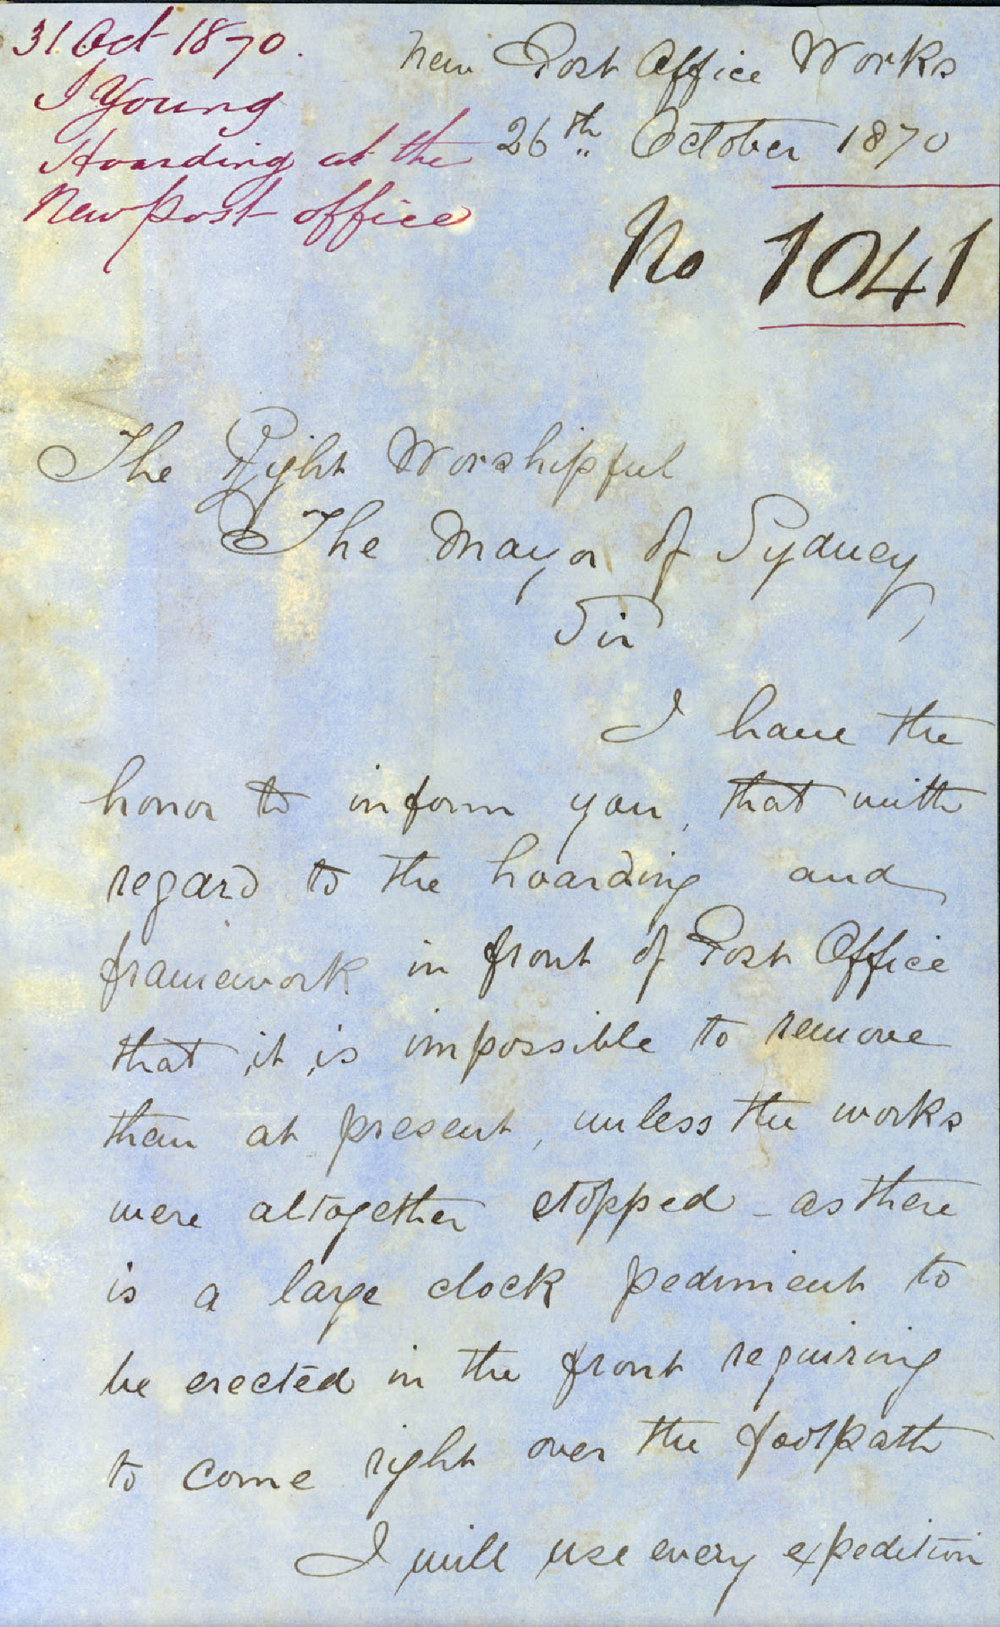 31 Oct 1870.
J Young
Hoarding at the
New post office
New Post Office Works
26th October 1870
No 1041
The Right Worshipful
The Mayor of Sydney,
Sir
I have the
honor to inform you, that with
regard to the hoarding and
framework in front of Post Office
that it is impossible to remove
them at present, unless the works
were altogether stopped - as there
is a large clock pediment to
be erected in the front requiring
to come right over the footpath
I will use every expedition